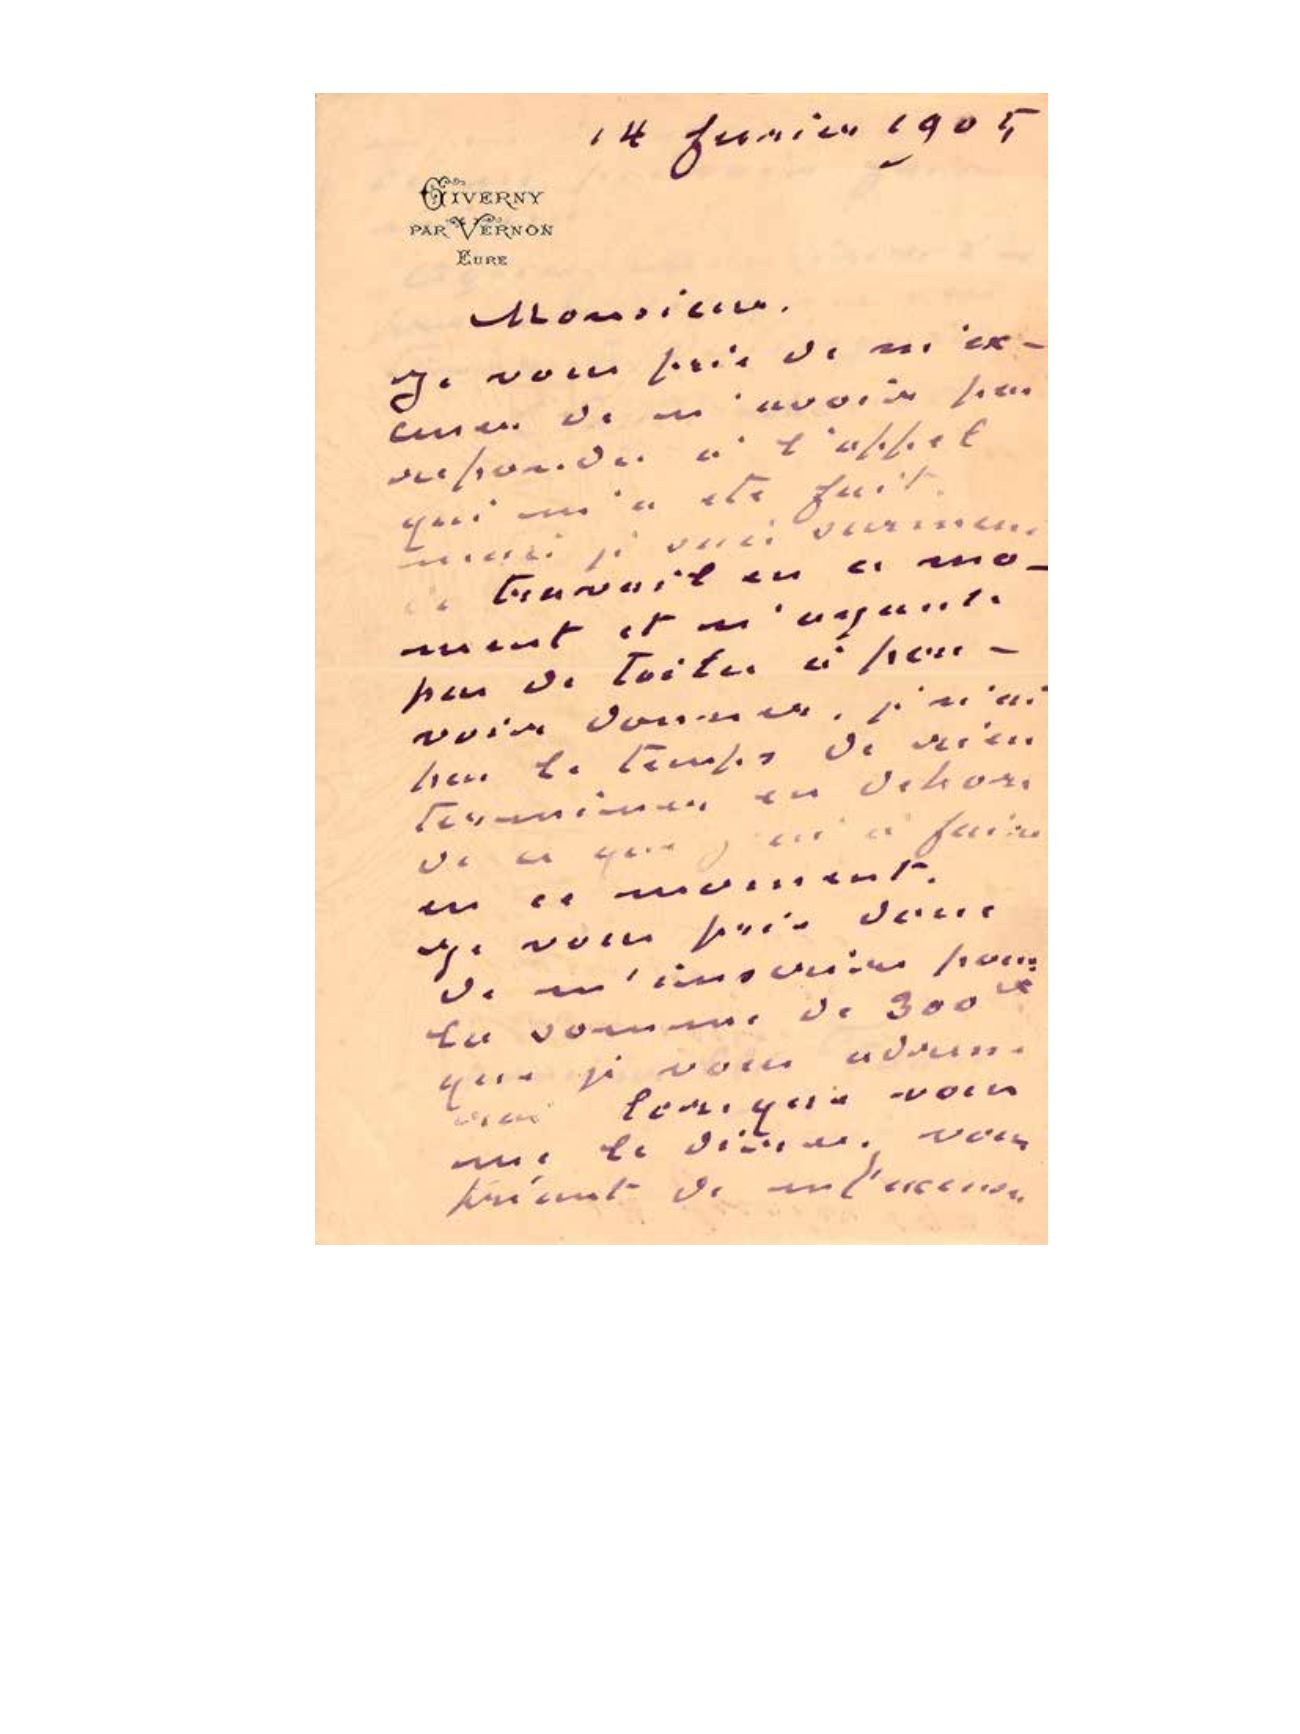 14 fevrier 1905
GIVERNY
PAR VERNON
EURE
Monsieur.
Je vous prie de m'ex-
cuser de n'avoir pas
repondu à l'appel
qui m'a été fait.
mais je suis surmené
de travail en ce mo-
ment et n'ayant
pas de toiles à pou-
voir donner, je n'ai
pas le temps de rien
terminer en dehors
de ce que j'ai à faire
en ce moment.
Je vous prie donc
de m'inscrire pour
la somme de 300 fr
que je vous adresse-
rai lorsque vous
me le direz, vous
priant de m'excuser